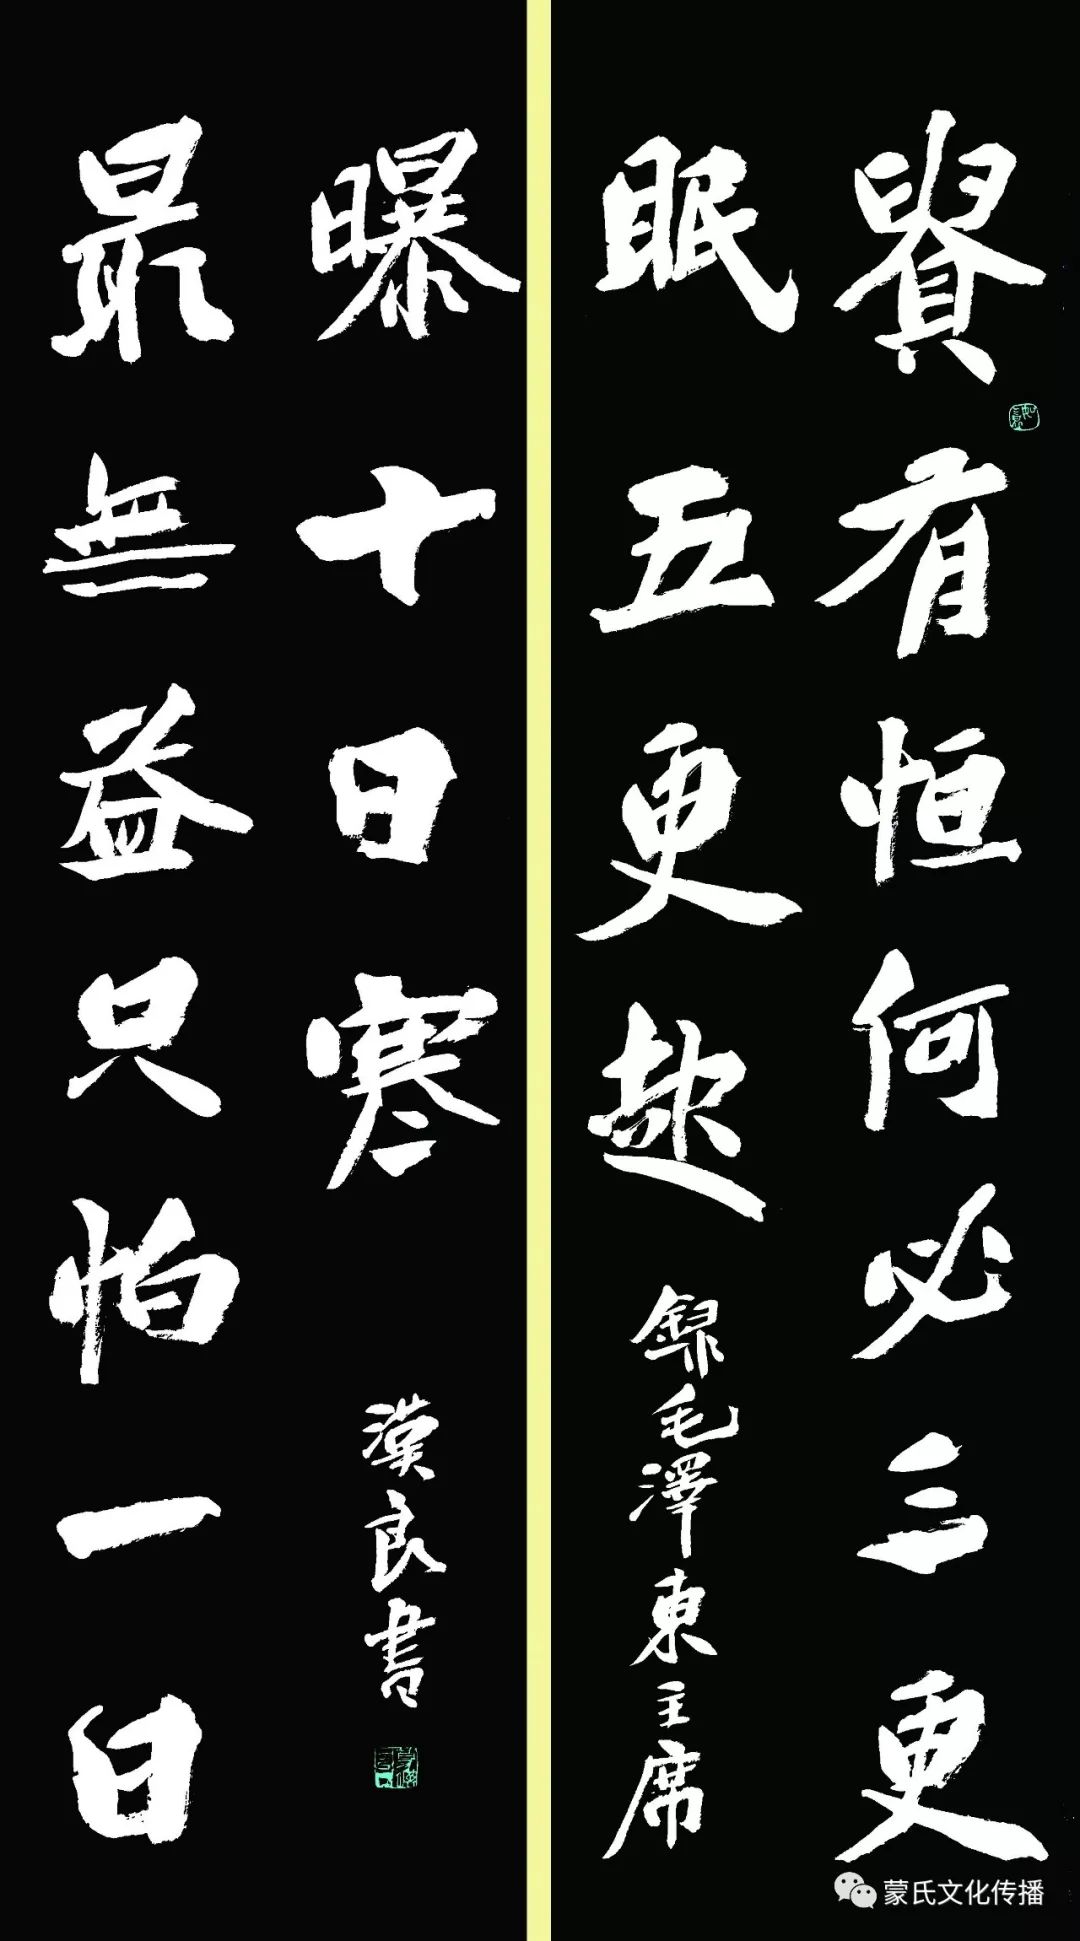 貴有恒何必三更
眠五更起
錄毛澤東主席
最無益只怕一日
曝十日寒
漢良書
蒙氏文化传播